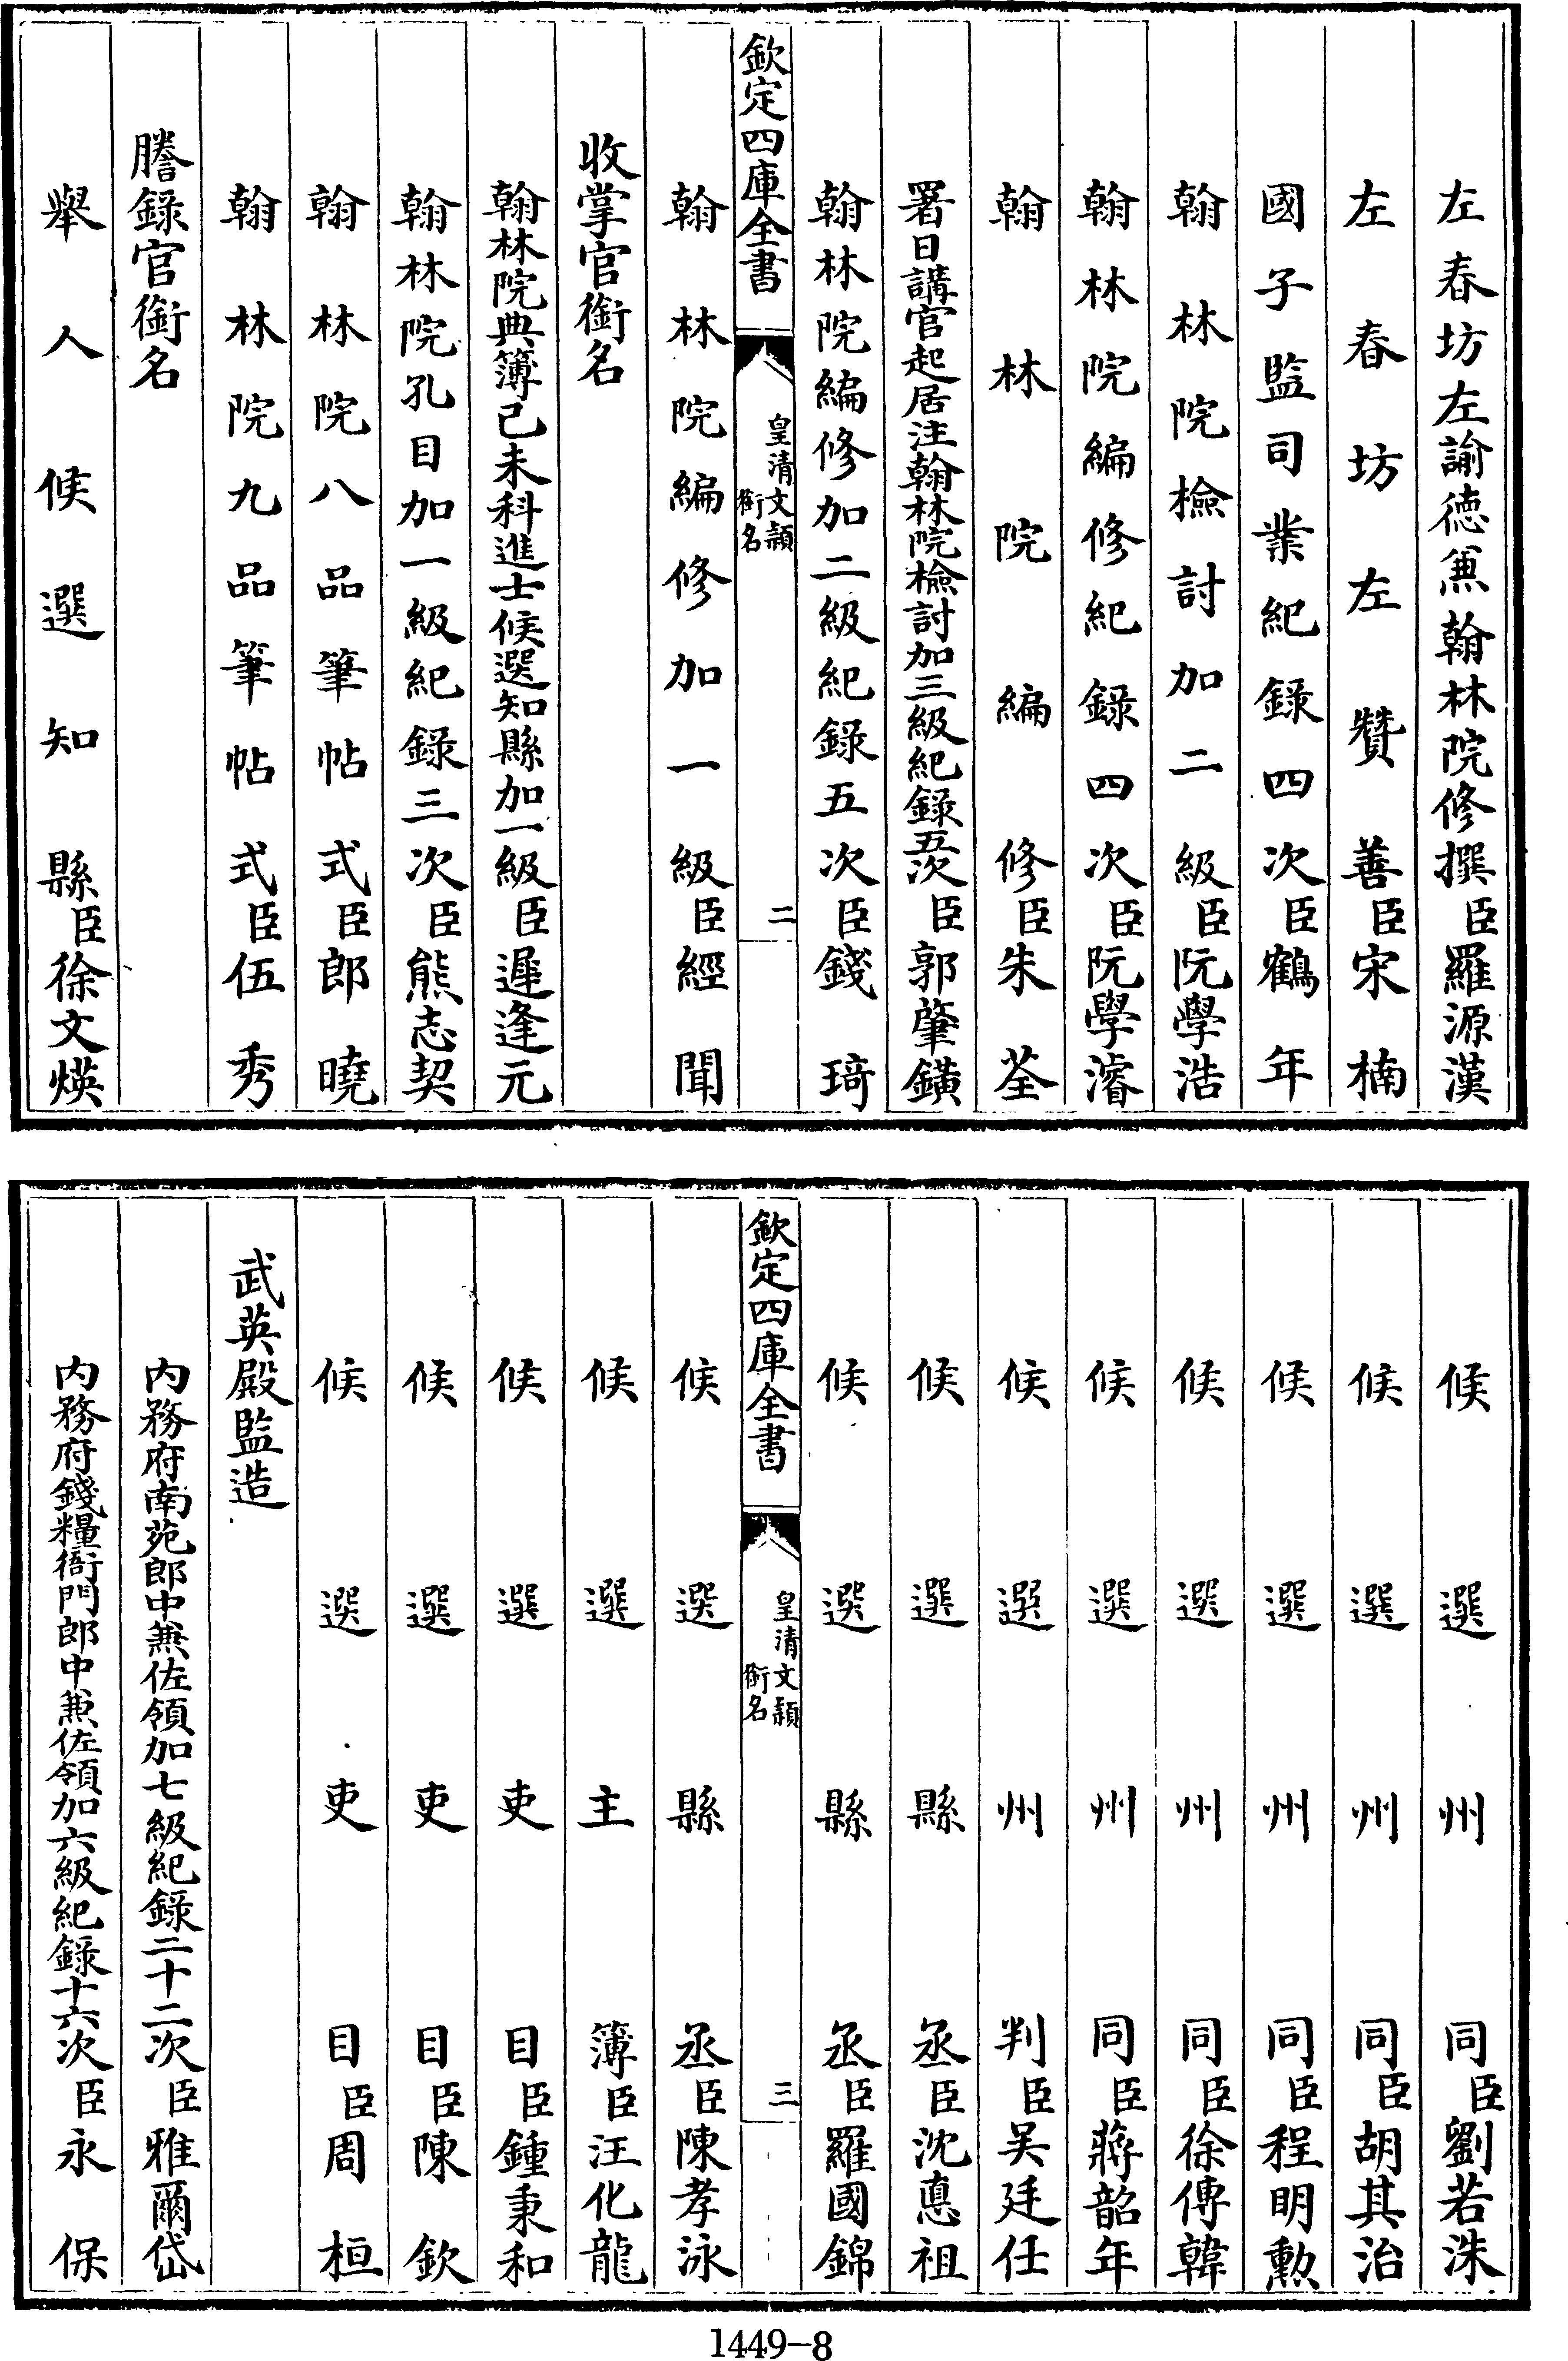 左春坊左諭徳兼翰林院修撰臣羅源漢
左春坊左贊善臣宋楠
國子監司業紀錄四次臣鶴年
翰林院檢討加二級臣阮學浩
翰林院編修紀錄四次臣阮學濬
翰林院編修臣朱荃
署日講官起居注翰林院檢討加三級紀錄五次臣郭肇鐄
翰林院編修加二級紀錄五次臣錢琦
欽定四庫全書
皇清文穎
銜名
二
翰林院編修加一級臣經聞
收掌官銜名
翰林院典簿己未科進士候選知縣加一級臣遲逢元
翰林院孔目加一級紀錄三次臣熊志契
翰林院八品筆帖式臣郎曉
翰林院九品筆帖式臣伍秀
謄錄官銜名
舉人候選知縣臣徐文煐
候選州同臣劉若洙
候選州同臣胡其治
候選州同臣程明勲
候選州同臣徐傳韓
候選州同臣蔣韶年
候選州判臣吴廷任
候選縣丞臣沈惪祖
候選縣丞臣羅國錦
欽定四庫全書
皇清文穎
銜名
三
候選縣丞臣陳孝泳
候選主簿臣汪化龍
候選吏目臣鍾秉和
候選吏目臣陳欽
候選吏目臣周桓
武英殿監造
内務府南苑郎中兼佐領加七級紀錄二十二次臣雅爾岱
内務府錢糧衙門郎中兼佐領加六級紀錄十六次臣永保
1449-8